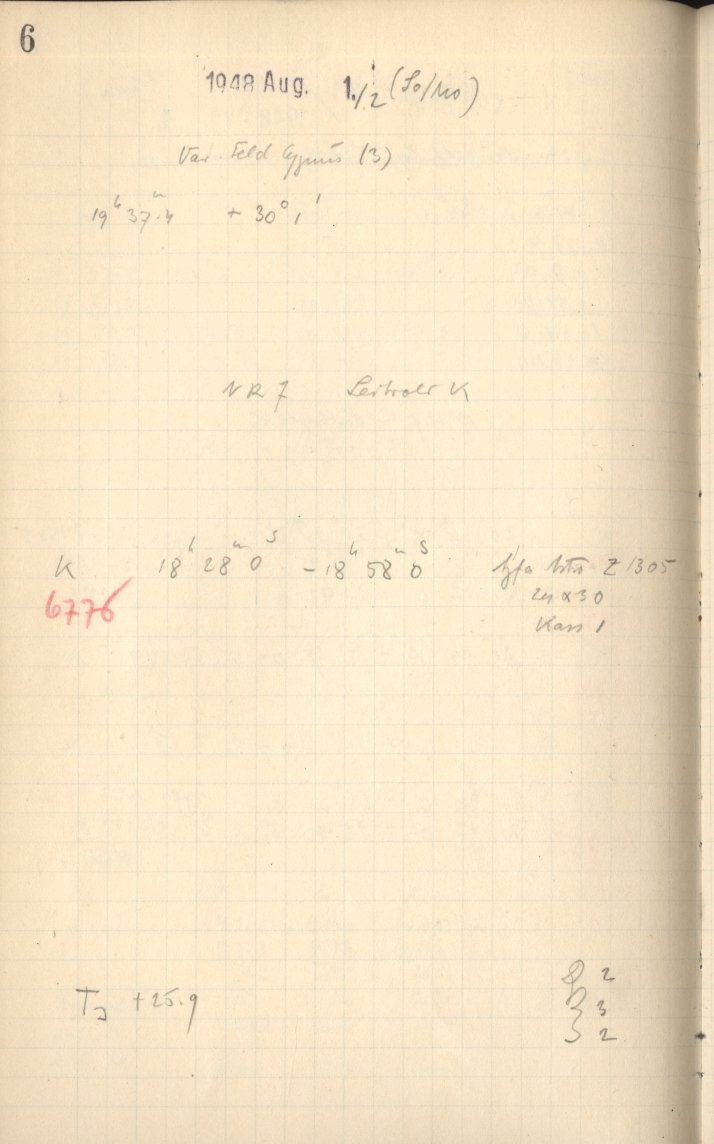 6
1948 Aug. 1./2 (So/Mo)
Var. Feld Cygnus (3)
19h 37m.4 + 30° 1'
NR 7 K
K 18h 28m 0s – 18h 58m 0s Agfa Astro Z 1305
6776 24 x 30
Kass 1
+25.9 2
3
2